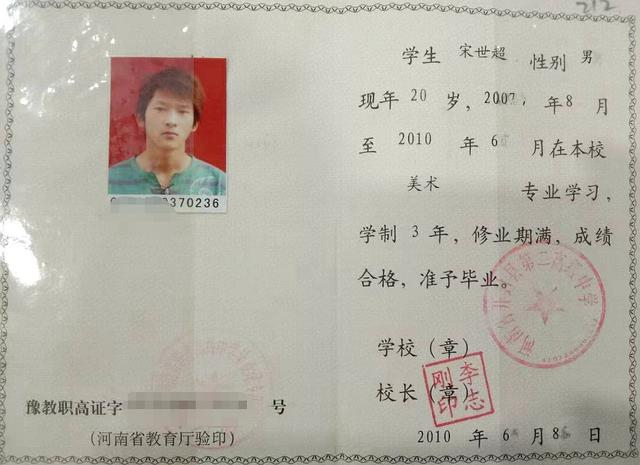 212
学生 宋世超 性别 男
现年 20 岁，2007 年 8 月
至 2010 年 6 月在本校
美术 专业学习，
学制 3 年，修业期满，成绩
合格，准予毕业。
370236
第二高级中学
学校（章）
校长（章）
李志
刚印
豫教职高证字 号
（河南省教育厅验印）
2010 年 6 月 8 日